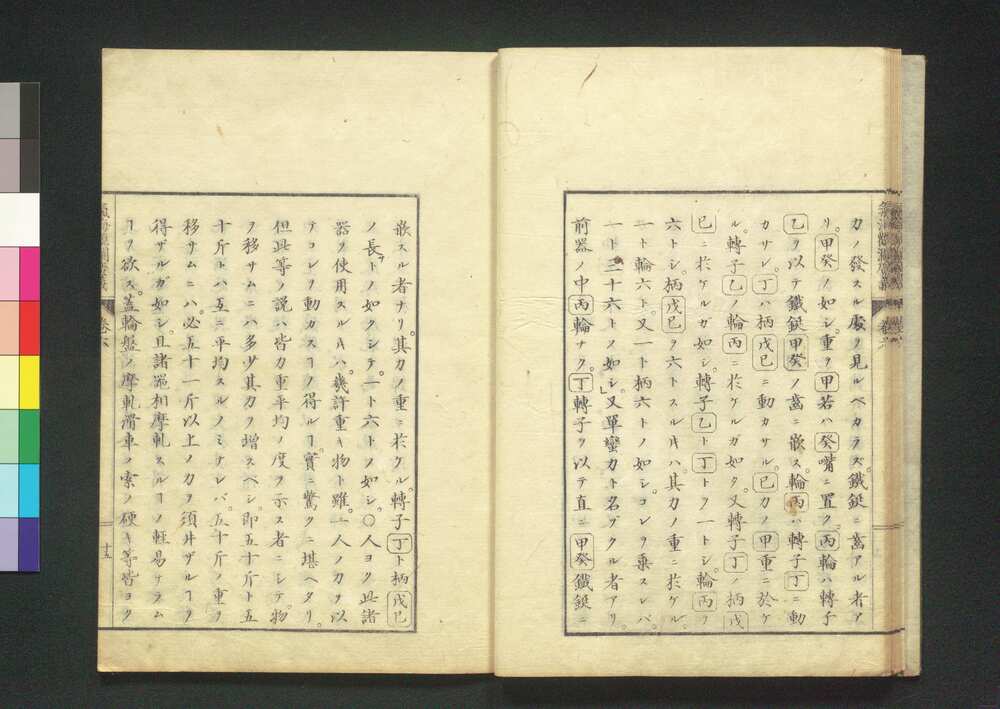 カノ發スル處ヲ見ルベカラズ。鐵鋌ニ齒アル者ア
リ。甲癸ノ如シ。重ヲ甲若ハ癸嘴ニ置ク。丙輪ハ轉子
乙ヲ以テ鐵鋌甲癸ノ齒ニ嵌ス。輪丙ハ轉子丁ニ動
カサレ。丁ハ柄戊巳ニ動カサル。巳カノ甲重ニ於ケ
ル。轉子乙ノ輪丙ニ於ケルガ如ク。又轉子丁ノ柄戊
巳ニ於ケルガ如シ。轉子乙ト丁トヲ一トシ。輪丙ヲ
六トシ。柄戊巳ヲ六トスルキハ。其力ノ重ニ於ケル。
一ト輪六ト。又一ト柄六トノ如シ。コレヲ乗スレバ。
一ト三十六トノ如シ。又單蠻力ト名ヅクル者アリ。
前器ノ中丙輪ナク。丁轉子ヲ以テ直ニ甲癸鐵鋌ニ
嵌スル者ナリ。其力ノ重ニ於ケル。轉子丁ト柄戊巳
ノ長トノ如クシテ。一ト六トノ如シ。〇人ヨク此諸
器ヲ使用スルキハ。幾許重キ物ト雖。一人ノ力ヲ以
テコレヲ動カスヿノ得ルヿ。實ニ驚クニ堪ヘタリ。
但此等ノ説ハ皆力重平均ノ度ヲ示ス者ニシテ。物
ヲ移サムニハ多少其力ヲ増スベシ。即五十斤ト五
十斤トハ互ニ平均スルノミナレバ。五十斤ノ重ヲ
移サムニハ。必五十一斤以上ノ力ヲ須井ザルヿヲ
得ザルガ如シ。且諸器相摩軋スルヿノ輕易ナラム
ヿヲ欲ス。蓋輪盤ノ摩軋滑車ノ索ノ硬キ等皆ヨク
卷六
十五